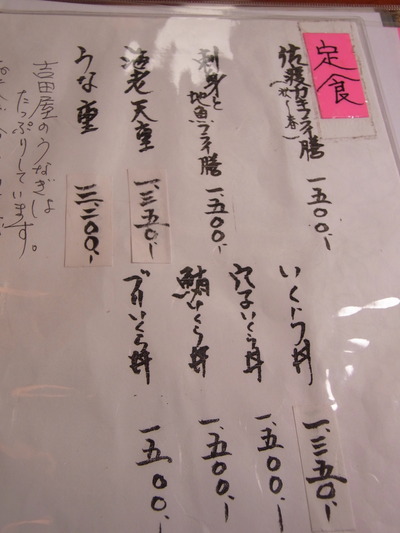 定食
佐渡カキフライ膳
一、五〇〇、-
刺身と
地魚フライ膳
一、五〇〇、-
海老天重
一、三五〇、-
うな重
三、二〇〇、-
吉田屋のうなぎは
たっぷりしています。
いくら丼
一、三五〇、-
穴子いくら丼
一、五〇〇、-
鮪いくら丼
一、五〇〇、-
ブリいくら丼
一、五〇〇、-